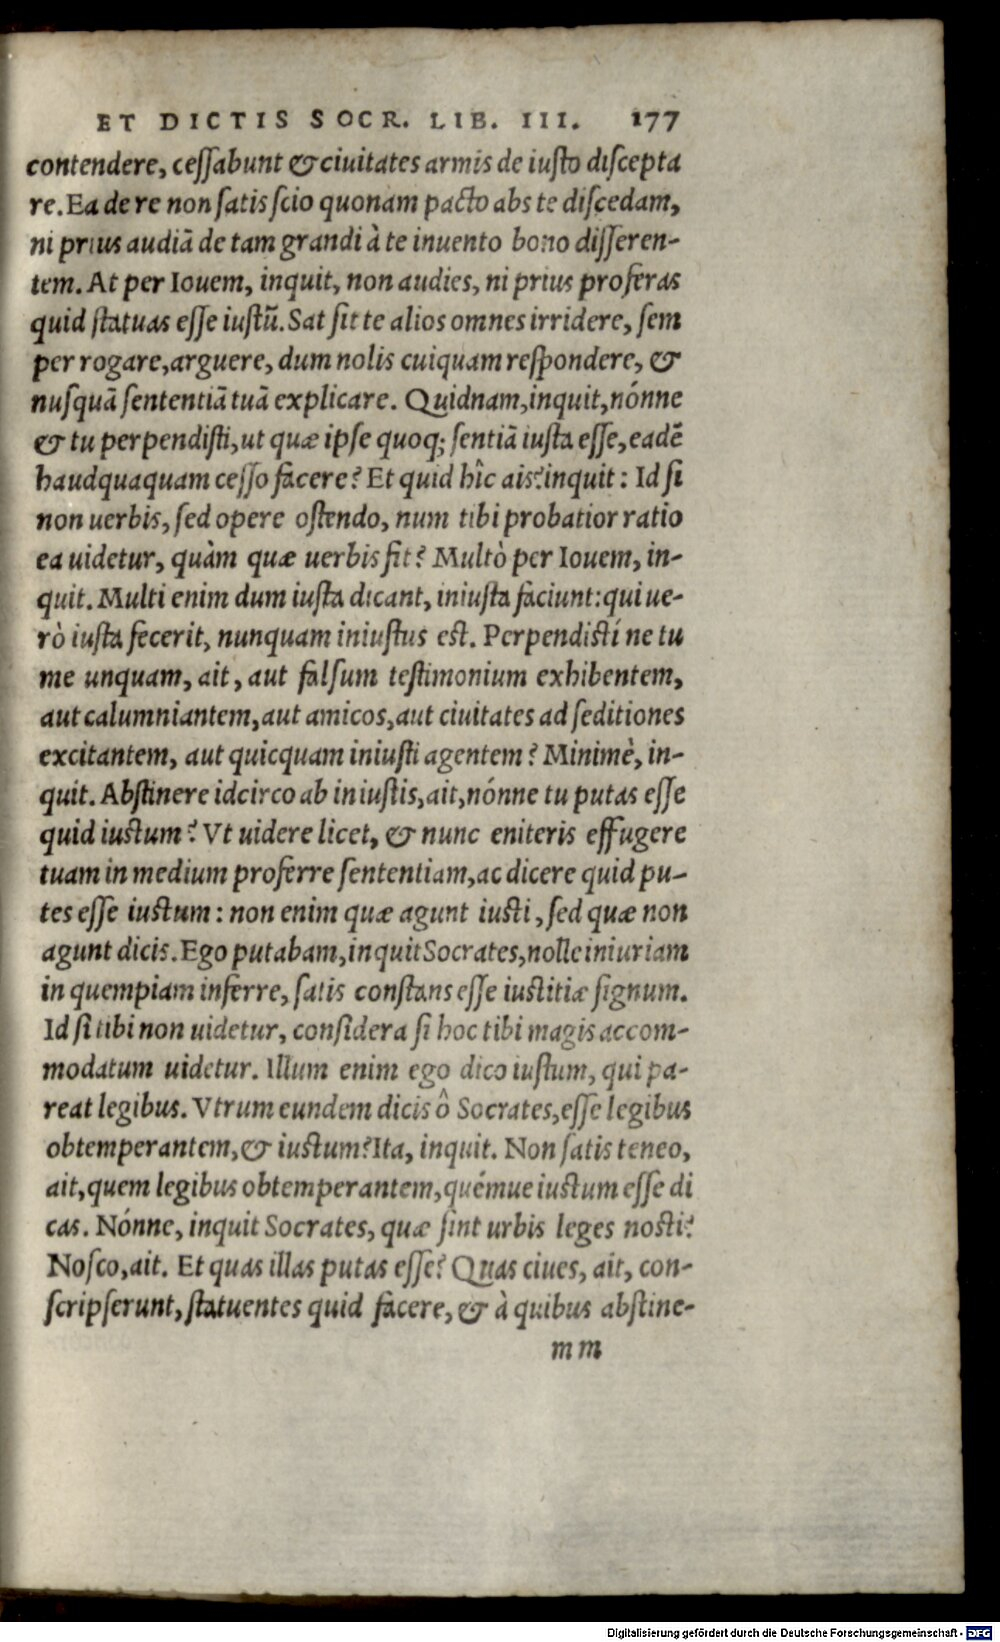 ET DICTIS SOCR. LIB. III. 177
contendere, ceſſabunt & ciuitates armis de iuſto diſcepta
re. Ea de re non ſatis ſcio quonam pacto abs te diſcedam,
ni prius audiā de tam grandi à te inuento bono diſſeren-
tem. At per Iouem, inquit, non audies, ni prius proferas
quid ſtatuas eſſe iuſtū. Sat ſit te alios omnes irridere, ſem
per rogare, arguere, dum nolis cuiquam reſpondere, &
nuſquā ſententiā tuā explicare. Quidnam, inquit, nónne
& tu perpendiſti, ut quæ ipſe quoq; ſentiā iuſta eſſe, eadē
haudquaquam ceſſo facere? Et quid hîc ais? inquit: Id ſi
non uerbis, ſed opere oſtendo, num tibi probatior ratio
ea uidetur, quàm quæ uerbis fit? Multò per Iouem, in-
quit. Multi enim dum iuſta dicant, iniuſta faciunt: qui ue-
rò iuſta fecerit, nunquam iniuſtus est. Perpendiſtí ne tu
me unquam, ait, aut falſum teſtimonium exhibentem,
aut calumniantem, aut amicos, aut ciuitates ad ſeditiones
excitantem, aut quicquam iniuſti agentem? Minimè, in-
quit. Abſtinere idcirco ab iniuſtis, ait, nónne tu putas eſſe
quid iustum? Vt uidere licet, & nunc eniteris effugere
tuam in medium proferre ſententiam, ac dicere quid pu-
tes eſſe iustum: non enim quæ agunt iusti, ſed quæ non
agunt dicis. Ego putabam, inquit Socrates, nolle iniuriam
in quempiam inferre, ſatis conſtans eſſe iustitiæ ſignum.
Id ſi tibi non uidetur, conſidera ſi hoc tibi magis accom-
modatum uidetur. Illum enim ego dico iuſtum, qui pa-
reat legibus. Vtrum eundem dicis ô Socrates, eſſe legibus
obtemperantem, & iustum? Ita, inquit. Non ſatis teneo,
ait, quem legibus obtemperantem, quémue iustum eſſe di
cas. Nónne, inquit Socrates, quæ ſint urbis leges nosti?
Noſco, ait. Et quas illas putas eſſe? Quas ciues, ait, con-
ſcripſerunt, ſtatuentes quid facere, & à quibus abstine-
m m
Digitalisierung gefördert durch die Deutsche Forschungsgemeinschaft - DFG